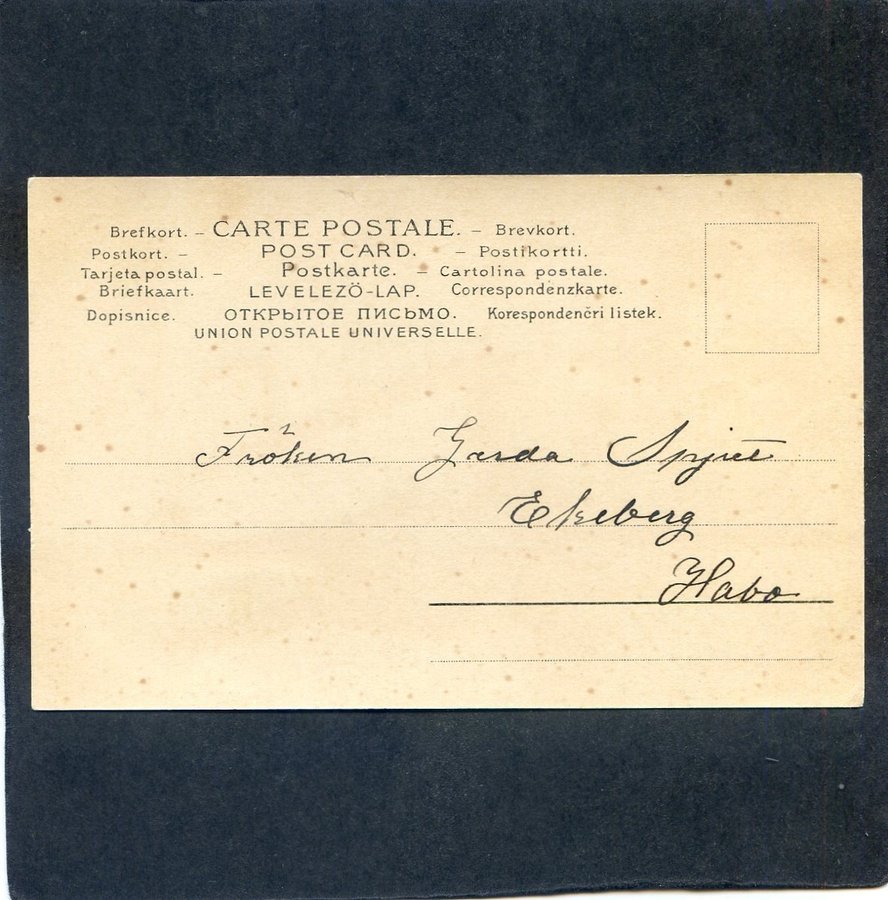 Brefkort. – CARTE POSTALE. – Brevkort.
Postkort. – POST CARD. – Postikortti.
Tarjeta postal. – Postkarte. – Cartolina postale.
Briefkaart. LEVELEZŐ-LAP. Correspondenzkarte.
Dopisnice. ОТКРЫТОЕ ПИСЬМО. Korespondenčri listek.
UNION POSTALE UNIVERSELLE.
Fröken Gerda Spjut
Ekeberg
Habo